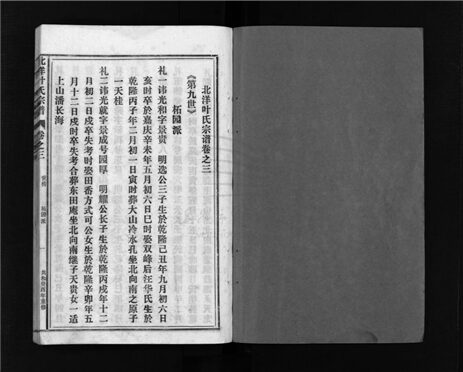 北洋叶氏宗谱卷之三
柘园派
《第九世》
礼一讳光和字景贵 明选公三子生於乾隆己丑年九月初六日
亥时卒於嘉庆辛未年五月初六日巳时娶双峰后汪华氏生於
乾隆丙子年二月初一日寅时葬大山冷水孔坐北向南之原子
一天桂
礼二讳光就字景成号国厚 明耀公长子生於乾隆丙戌年十二
月初二日戌时卒失考时娶田番方式可公女生於乾隆辛卯年五
月十二日戌时卒失考合葬东田庵坐北向南继子天贵女一适
上山潘长海
北洋叶氏宗谱
卷之三
柘园派
一